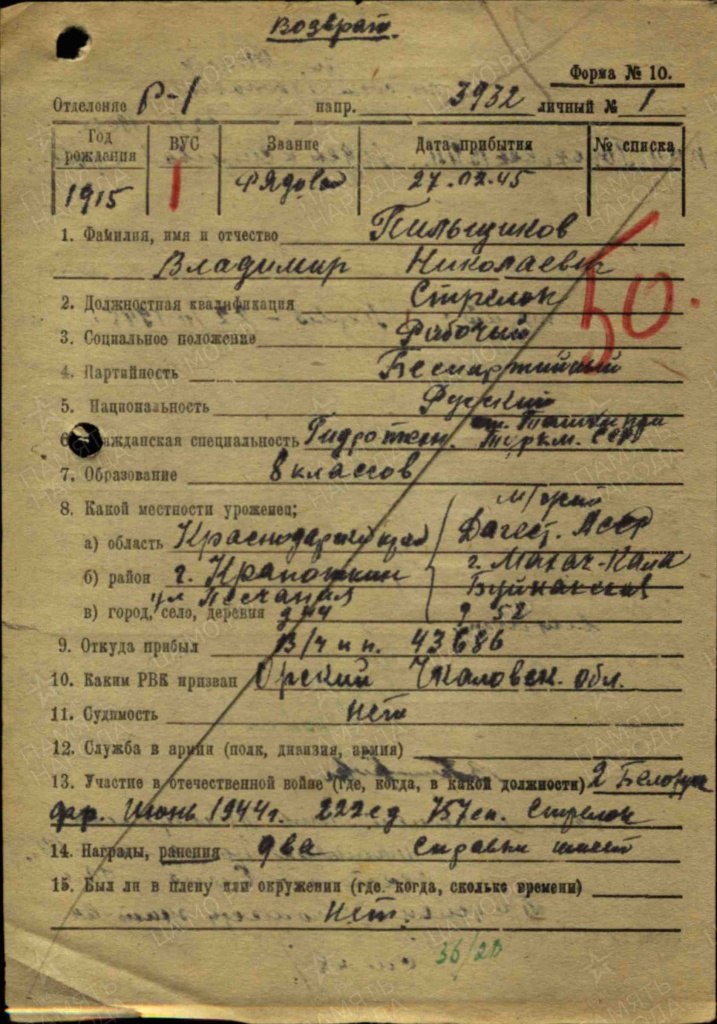 Возврат.
Форма № 10.
Отделение Р-1 напр. 3932 личный № 1
Год рождения ВУС Звание Дата прибытия № списка
1915 1 Рядовой 27.02.45
1. Фамилия, имя и отчество Пильщиков
Владимир Николаевич
50.
2. Должностная квалификация Стрелок
3. Социальное положение Рабочий
4. Партийность Беспартийный
5. Национальность Русский
6. Гражданская специальность Гидротехн. Туркм. ССР
7. Образование 8 классов
8. Какой местности уроженец;
а) область Краснодарский край Дагест. АССР
б) район г. Кропоткин г. Махач-Кала
ул Песчаная Буйнакская
в) город, село, деревня д 52
9. Откуда прибыл В/ч п п. 43686
10. Каким РВК призван Орский Чкаловск. обл.
11. Судимость нет
12. Служба в армии (полк, дивизия, армия)
13. Участие в отечественной войне (где, когда, в какой должности) 2 Белорус
фр. Июнь 1944г. 222сд 757сп. Стрелок
14. Награды, ранения два Справки имеет
15. Был ли в плену или окружении (где, когда, сколько времени)
Нет.
36/20